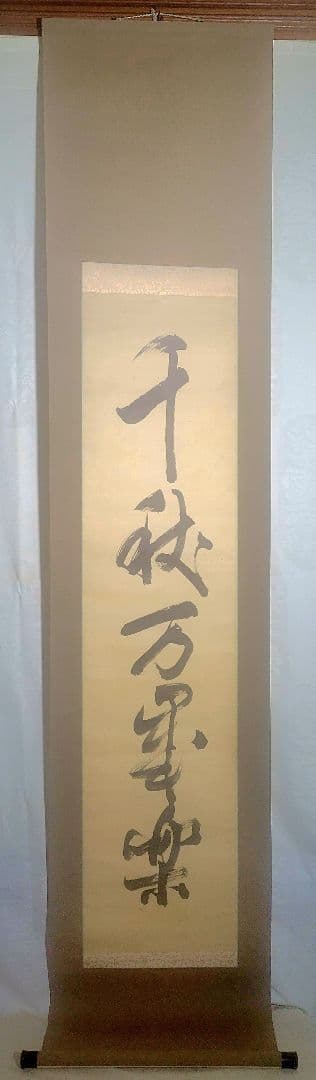 千秋万歳楽